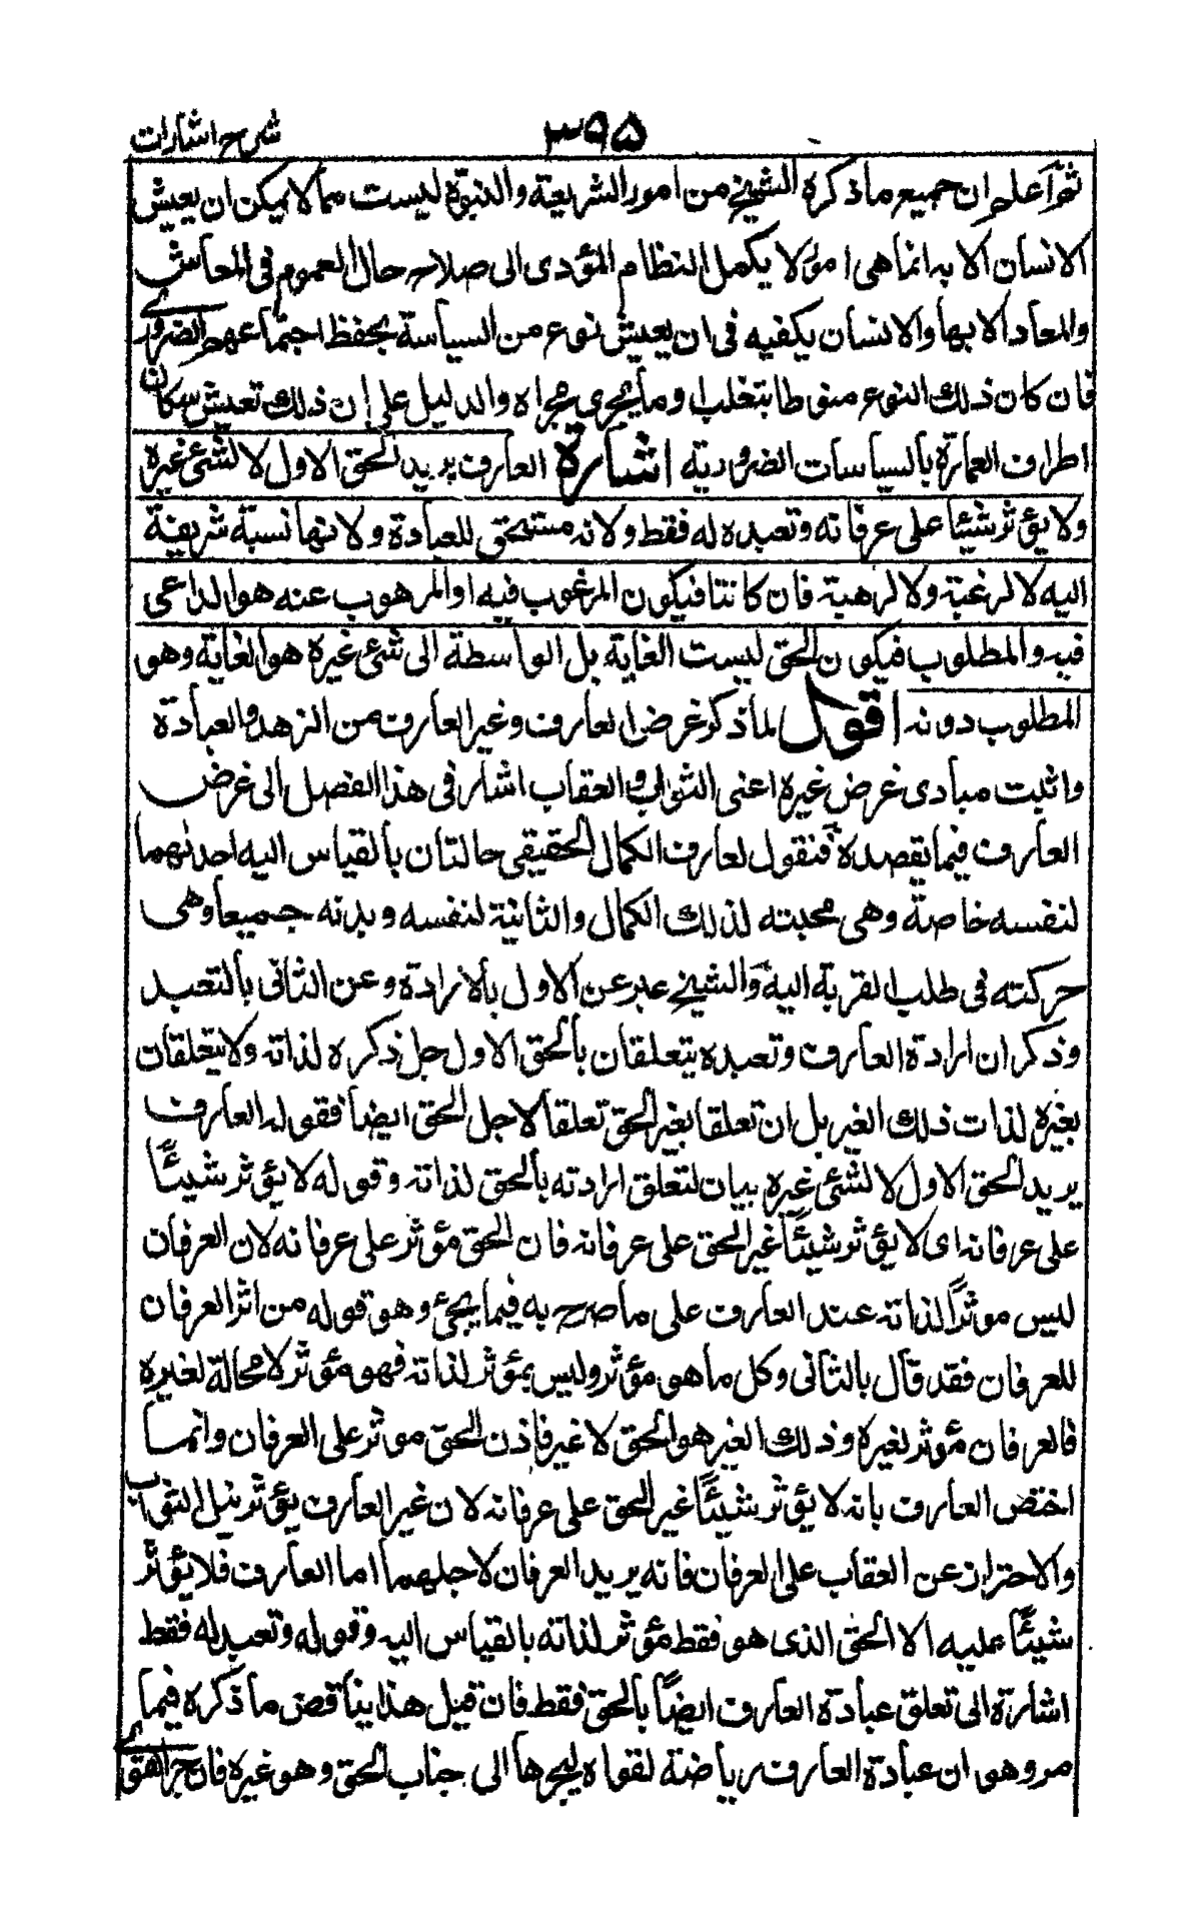 شرح اشارات
٣٩٥
ثم اعلم ان جميع ما ذكره الشيخ من امور الشريعة والنبوة ليست مما لا يمكن ان يعيش
الانسان الا به انما هى امور لا يكمل النظام المؤدى الى صلاح حال العموم فى المعاش
والمعاد الا بها والانسان يكفيه فى ان يعيش نوع من السياسة بحفظ اجتماعهم الضرورى
فان كان ذلك النوع منوطا بتغلب او ما يجرى مجراه والدليل على ان ذلك تعيش سكان
اطراف العمارة بالسياسات الضرورية اشارة العارف يريد الحق الاول لا لشئ غيره
ولا يؤثر شيئا على عرفانه وتعبده له فقط ولانه مستحق للعبادة ولانها نسبة شريفة
اليه لا لرغبة ولا لرهبة فان كانتا فيكون المرغوب فيه او المرهوب عنه هو الداعى
فيه والمطلوب فيكون الحق ليست الغاية بل الواسطة الى شئ غيره هو الغاية وهو
المطلوب دونه اقول لما ذكر غرض العارف وغير العارف من الزهد والعبادة
واثبت مبادى غرض غيره اعنى الثواب والعقاب اشار فى هذا الفصل الى غرض
العارف فيما يقصده فنقول لعارف الكمال الحقيقى حالتان بالقياس اليه احدٰىهما
لنفسه خاصة وهى محبته لذلك الكمال والثانية لنفسه وبدنه جميعا وهى
حركته فى طلب القربة اليه والشيخ عبر عن الاول بالارادة وعن الثانى بالتعبد
وذكر ان ارادة العارف وتعبده يتعلقان بالحق الاول جل ذكره لذاته ولا يتعلقان
بغيره لذات ذلك الغير بل ان تعلقا بغير الحق تعلقا لاجل الحق ايضا فقوله العارف
يريد الحق الاول لا لشئ غيره بيان لتعلق ارادته بالحق لذاته وقوله لا يؤثر شيئًا
على عرفانه اى لا يؤثر شيئًا غير الحق على عرفانه فان الحق مؤثر على عرفانه لان العرفان
ليس موثرًا لذاته عند العارف على ما صرح به فيما يجئ وهو قوله من اثر العرفان
للعرفان فقد قال بالثانى وكل ما هو مؤثر وليس بمؤثر لذاته فهو مؤثر لا محالة لغيره
فالعرفان مؤثر لغيره وذلك الغير هو الحق لا غير فاذن الحق موثر على العرفان وانما
اختص العارف بانه لا يؤثر شيئًا غير الحق على عرفانه لان غير العارف يؤثر نيل الثواب
والاحتراز عن العقاب على العرفان فانه يريد العرفان لاجلهما اما العارف فلا يؤثر
شيئًا عليه الا الحق الذى هو فقط مؤثر لذاته بالقياس اليه وقوله وتعبده له فقط
اشارة الى تعلق عبادة العارف ايضًا بالحق فقط فان قيل هذا يناقض ما ذكره فيما
مر وهو ان عبادة العارف رياضة لقواه ليجرها الى جناب الحق وهو غيره فان